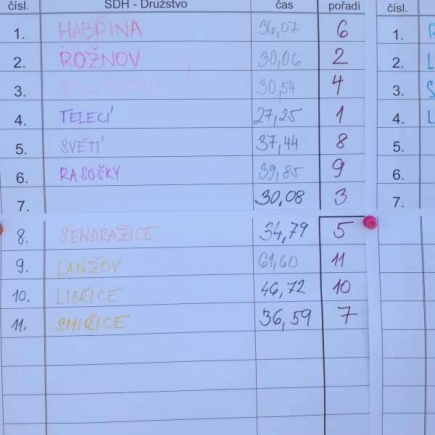 čísl. SDH - Družstvo čas pořadí čísl.
1. HABŘINA 36,07 6 1.
2. ROŽNOV 30,06 2 2. L
3. 30,54 4 3. S
4. TELECÍ 27,25 1 4. L
5. SVĚTÍ 37,44 8 5.
6. RASOŠKY 39,85 9 6.
7. 30.08 3 7.
8. SENDRAŽICE 34,79 5
9. LANŽOV 61,60 11
10. LIBŘICE 46,72 10
11. SMIŘICE 36,59 7